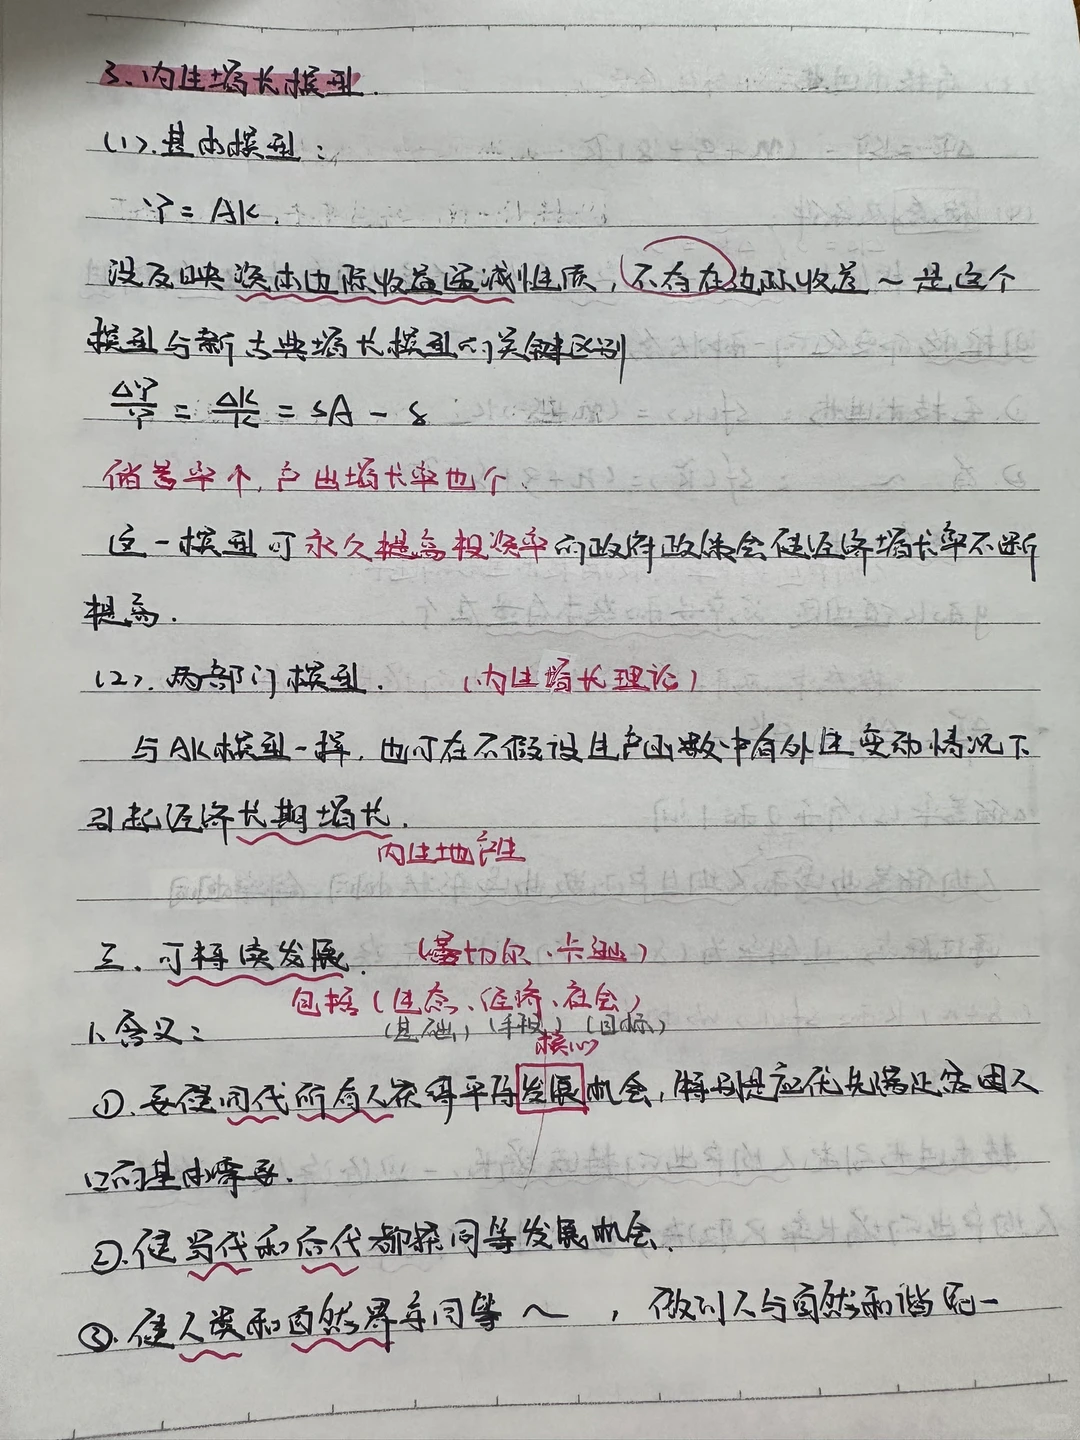 3、内生增长模型.
(1).基本模型:
Y = AK.
没反映资本边际收益递减性质,不存在边际收益～是这个
模型与新古典增长模型的关键区别
ΔY/Y = ΔK/K = sA - δ
储蓄率↑,产出增长率也↑.
这一模型可永久提高投资率的政府政策会使经济增长率不断
提高.
(2).两部门模型. (内生增长理论)
与AK模型一样,也可在不假设生产函数中有外生变动情况下
引起经济长期增长.
内生地产生
三、可持续发展. (蕾切尔·卡逊)
包括(生态、经济、社会)
1、含义: (基础) (手段) (目标)
核心
①.要使同代所有人获得平等发展机会,特别是应优先满足贫困人
口的基本需要.
②.使当代和后代都获同等发展机会.
③.使人类和自然界享同等～,做到人与自然和谐统一